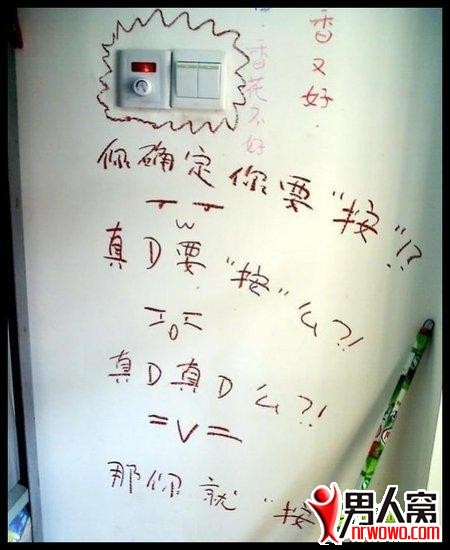 香又好
香花不好
你确定你要“按”!?
真D要“按”么?!
真D真D么?!
那你就“按
男人窝
nrwowo.com